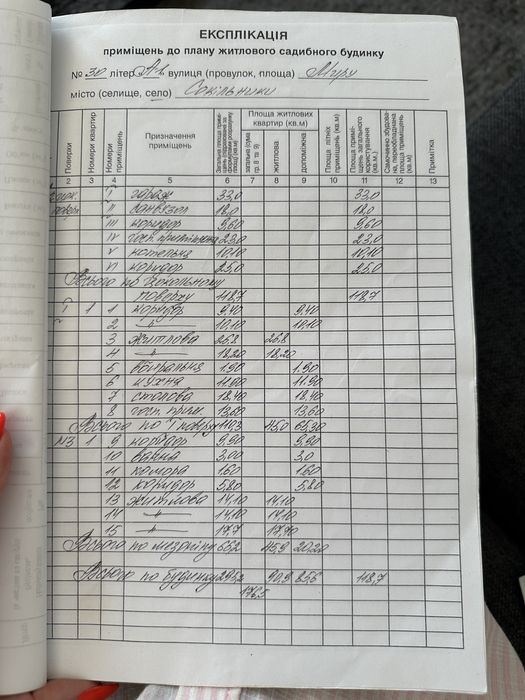 ЕКСПЛІКАЦІЯ
приміщень до плану житлового садибного будинку
№ 30 літер А-1 вулиця (провулок, площа) Миру
місто (селище, село) Сокільники
Поверхи Номери квартир Номери приміщень Призначення приміщень Загальна площа Площа житлових квартир (кв.м) загальне (сума гр. 8 та 9) житлова допоміжна Площа літніх приміщень (кв.м) Площа приміщень загального користування (кв.м.) Самочинно збудована, переобладнана площа приміщень (кв.м) Примітка
2 3 4 5 6 7 8 9 10 11 12 13
I гараж 33,0 33,0
поверх II санвузол 18,0 18,0
III коридор 9,60 9,60
IV госп. приміщення 23,0 23,0
V котельня 10,10 10,10
VI коридор 25,0 25,0
Всього по цокольному
поверху 118,7 118,7
I 1 1 коридор 9,40 9,40
2 -"- 10,10 10,10
3 житлова 26,8 26,8
4 -"- 18,20 18,20
5 вбиральня 1,90 1,90
6 кухня 11,90 11,90
7 столова 18,40 18,40
8 госп. прим. 13,60 13,60
Всього по 1 поверху 110,3 45,0 65,30
МЗ 1 9 коридор 9,90 9,90
10 ванна 3,00 3,0
11 комора 1,60 1,60
12 коридор 5,80 5,80
13 житлова 14,10 14,10
14 -"- 14,10 14,10
15 -"- 17,7 17,70
Всього по мезоніну 66,2 45,9 20,30
Всього по будинку 295,2 90,9 85,6 118,7
176,5